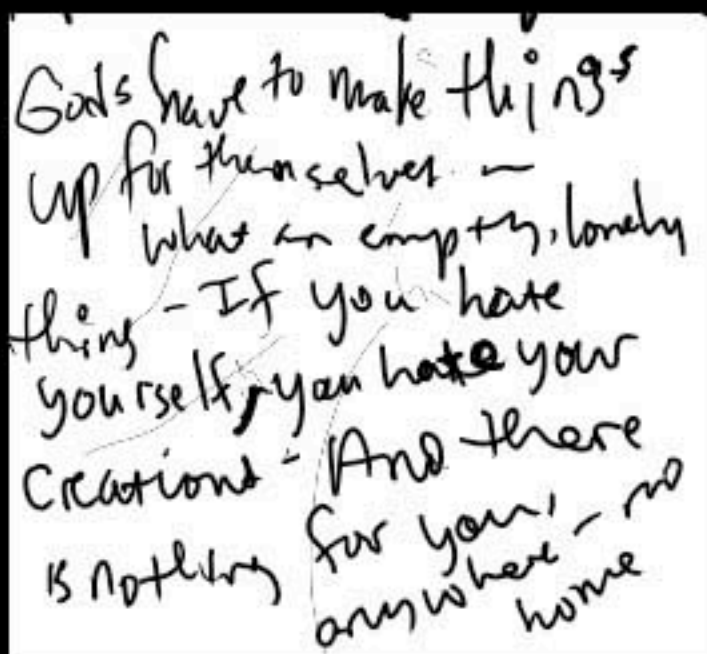 Gods have to make things
up for themselves —
what an empty, lonely
thing - If you hate
yourself, you hate your
creations - And there
is nothing for you,
anywhere - no
home